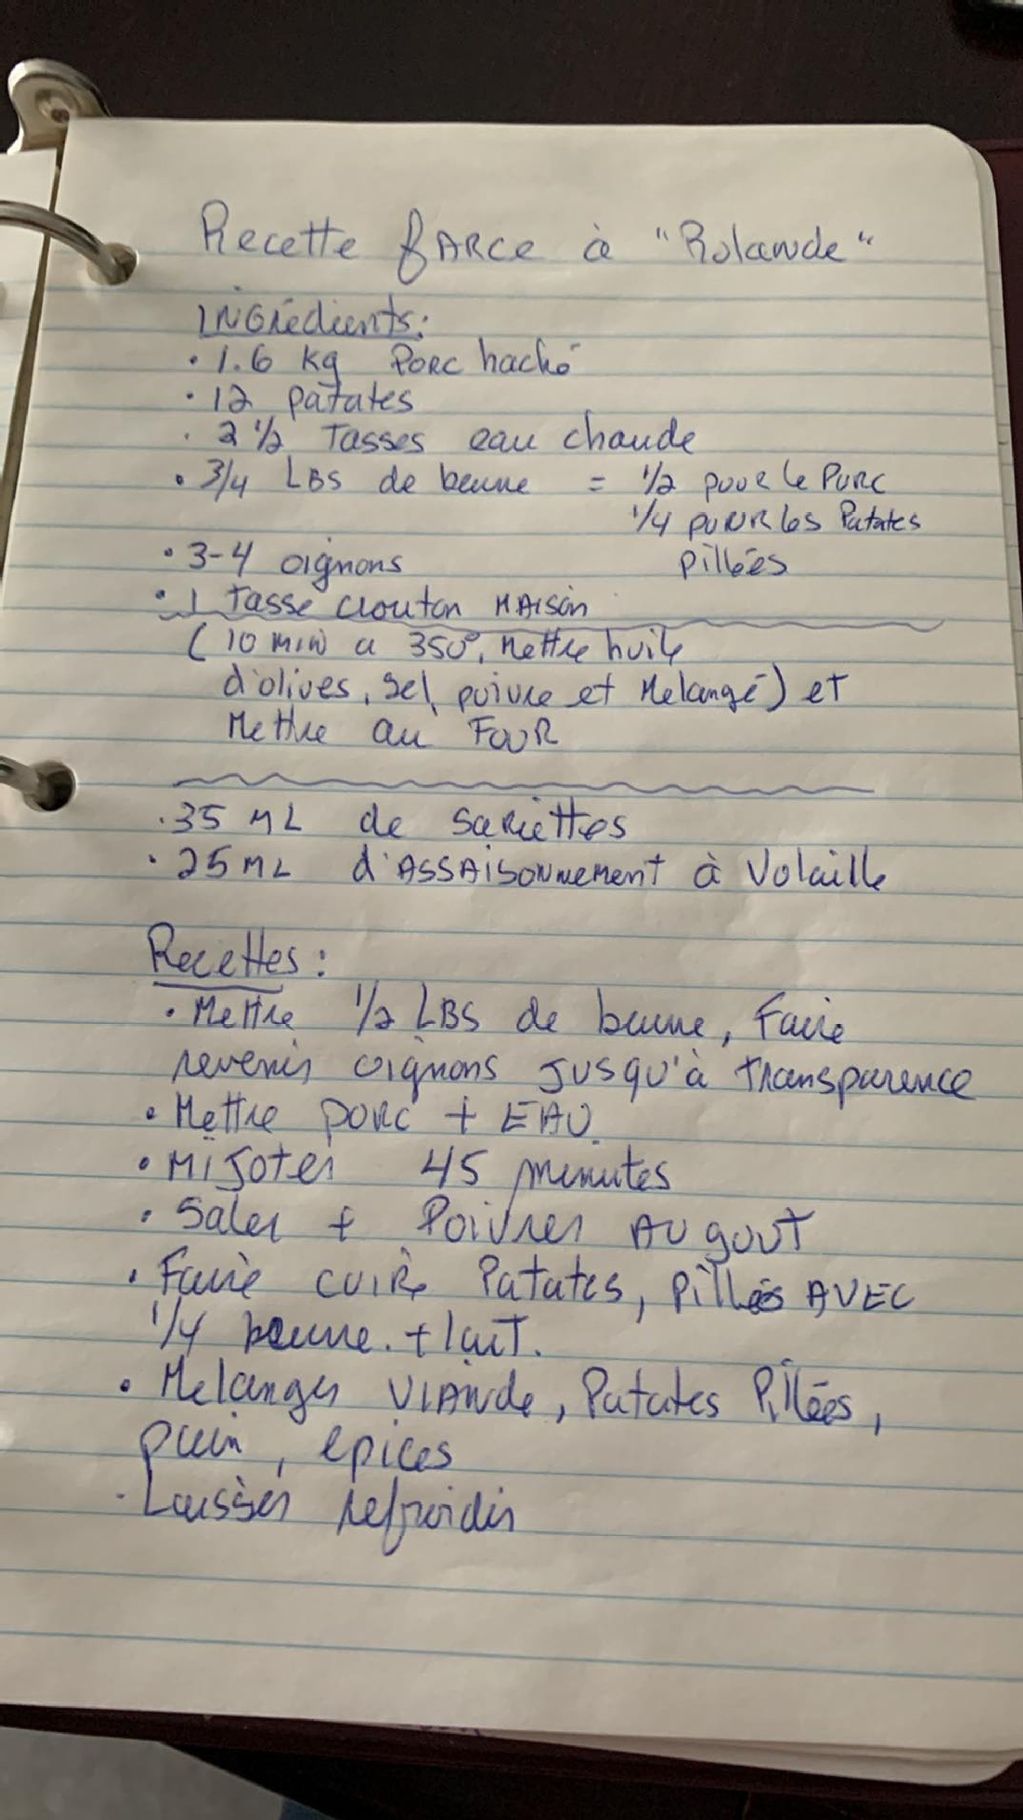 Recette fARce à "Rolande"
INGrédients:
• 1.6 kg Porc haché
• 12 patates
• 2 1/2 Tasses eau chaude
• 3/4 LBS de beurre = 1/2 pour le Porc
1/4 pour les Patates
pillées
• 3-4 oignons
• 1 Tasse crouton MAison
(10 min a 350°, Mettre huile
d'olives, sel, poivre et Melangé) et
Mettre au FOUR
• 35 ML de sariettes
• 25 ML d'ASSAiSonnement à Volaille
Recettes:
• Mettre 1/2 LBS de beurre, Faire
revenir oignons JUSqu'à transparence
• Mettre porc + EAU.
• MiJoter 45 minutes
• Saler + Poivrer AU gout
• Faire cuire Patates, Pillées AVEC
1/4 beurre. + lait.
• Melanger VIANde, Patates Pilées,
pain, epices
• Laisser refroidir